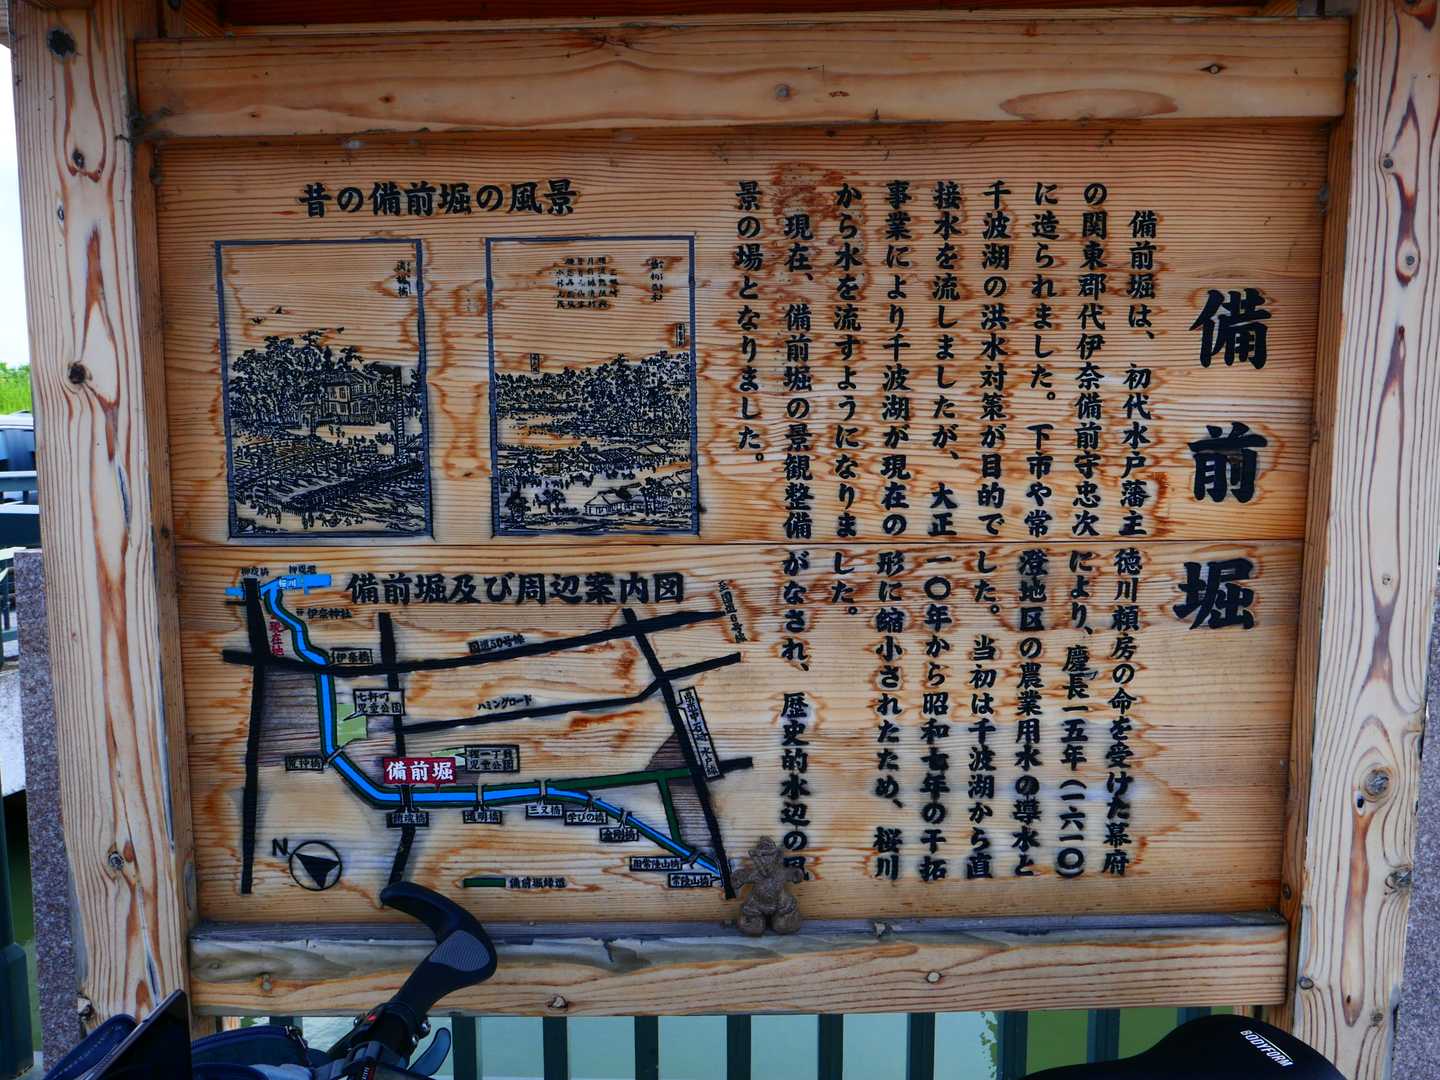 備前堀
備前堀は、初代水戸藩主徳川頼房の命を受けた幕府
の関東郡代伊奈備前守忠次により、慶長一五年(一六一〇)
に造られました。下市や常澄地区の農業用水の導水と
千波湖の洪水対策が目的でした。当初は千波湖から直
接水を流しましたが、大正一〇年から昭和七年の干拓
事業により千波湖が現在の形に縮小されたため、桜川
から水を流すようになりました。
現在、備前堀の景観整備がなされ、歴史的水辺の風
景の場となりました。
昔の備前堀の風景
備前堀及び周辺案内図
桜川
伊奈神社
現在地
伊奈橋
国道50号線
七軒町
児童公園
ハミングロード
児童公園
備前堀
道明橋
三又橋
学びの橋
金剛橋
常陸山橋
備前堀緑道
N
BODYFORM